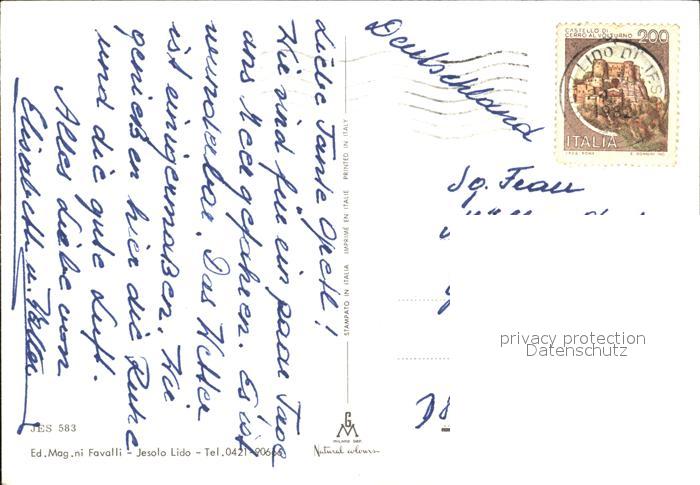 Liebe Tante Gretl!
Wir sind für ein paar Tage
ans Meer gefahren. Es ist
wunderbar. Das Wetter
ist einigermaßen. Wir
genießen hier die Ruhe
und die gute Luft.
Alles Liebe von
Elisabeth u.
Deutschland
Sg. Frau
CASTELLO DI
CERRO AL VOLTURNO 200
LIDO DI JES
ITALIA
I.P.Z.S. ROMA
STAMPATO IN ITALIA IMPRIMÉ EN ITALIE PRINTED IN ITALY
privacy protection
Datenschutz
JES 583
Ed.Mag.ni Favalli - Jesolo Lido - Tel.0421-90666
GM
Natural colours